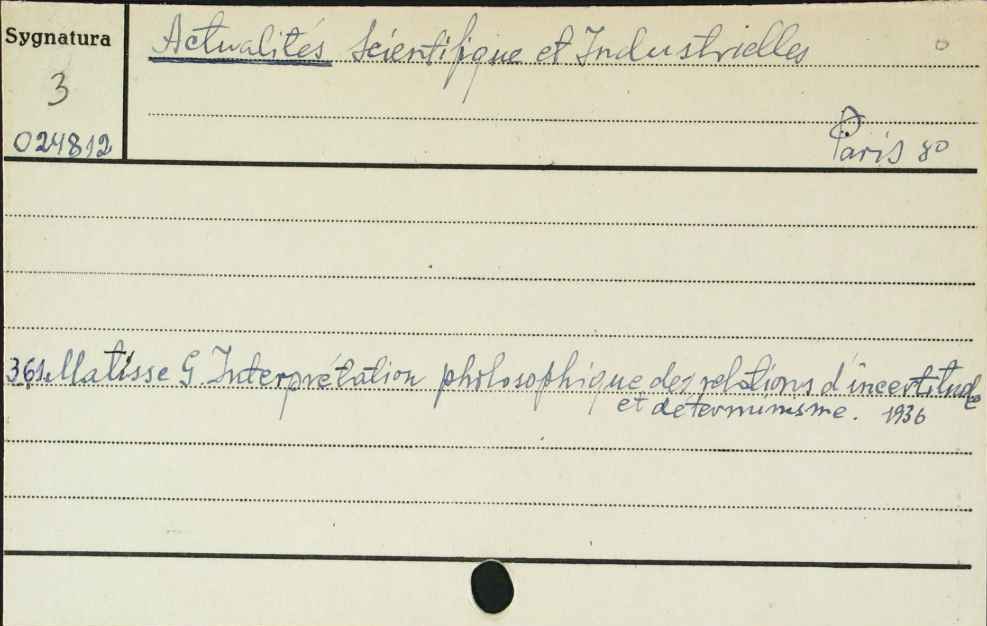 Sygnatura
3
024812
Actualités Scientifique et Industrielles
Paris 8º
361. Matisse G Interprétation philosophique des relations d'incertitude
et determinisme. 1936